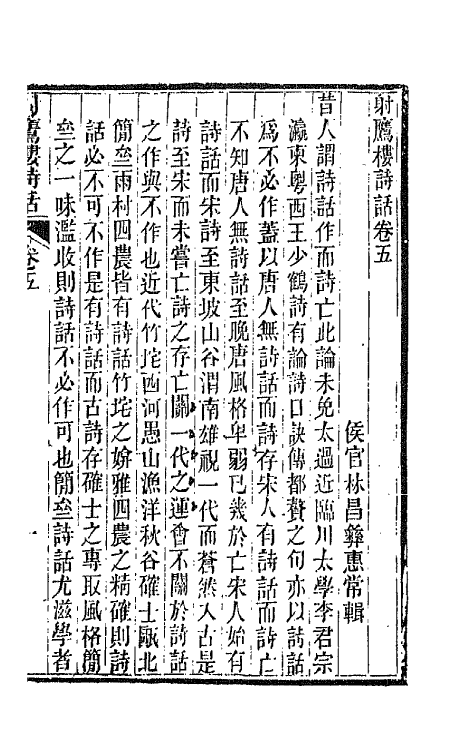 射鷹樓詩話卷五
侯官林昌彝惠常輯
昔人謂詩話作而詩亡此論未免太過近臨川太學李君宗
瀛東粵西王少鶴詩有論詩口訣傳都贅之句亦以詩話
爲不必作蓋以唐人無詩話而詩存宋人有詩話而詩亡
不知唐人無詩話至晚唐風格卑弱已幾於亡宋人始有
詩話而宋詩至東坡山谷渭南雄視一代而蒼然入古是
詩至宋而未嘗亡詩之存亡關一代之運會不關於詩話
之作與不作也近代竹垞西河愚山漁洋秋谷確士甌北
簡齋雨村四農皆有詩話竹垞之媕雅四農之精確則詩
話必不可不作是有詩話而古詩存確士之專取風格簡
齋之一味濫收則詩話不必作可也簡齋詩話尤滋學者
射鷹樓詩話
卷五
一